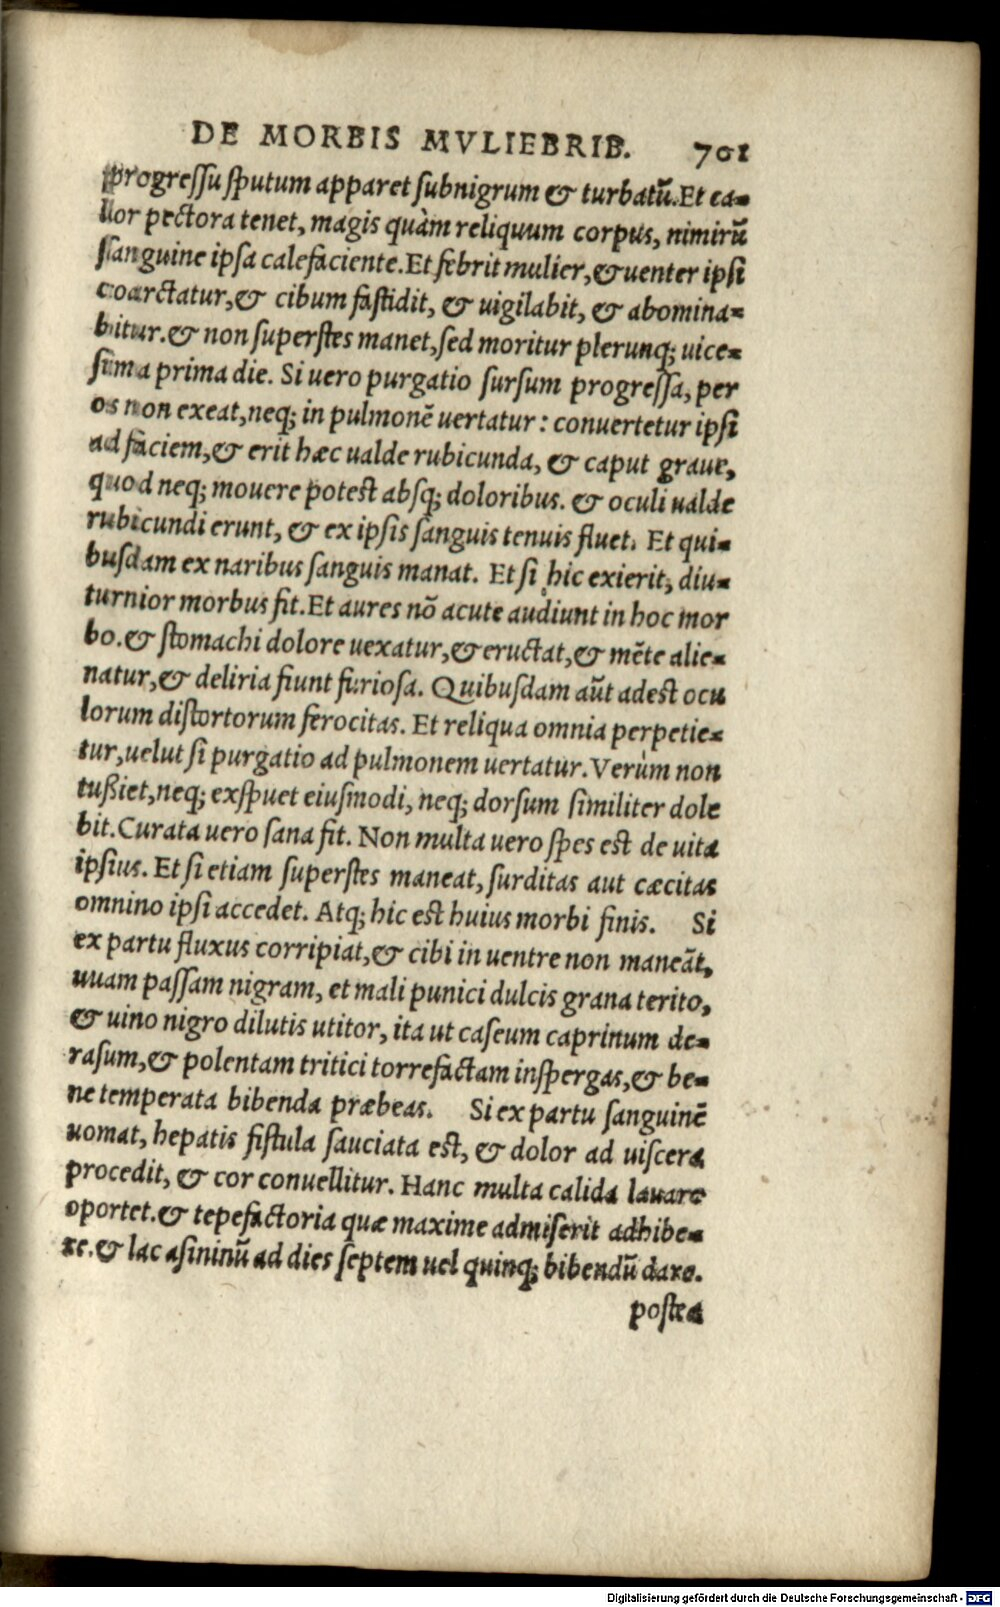 DE MORBIS MVLIEBRIB. 701
progressu sputum apparet subnigrum & turbatũ. Et ca-
lor pectora tenet, magis quàm reliquum corpus, nimirũ
sanguine ipsa calefaciente. Et febrit mulier, & uenter ipsi
coarctatur, & cibum fastidit, & uigilabit, & abomina-
bitur. & non superstes manet, sed moritur plerunq; uice-
sima prima die. Si uero purgatio sursum progressa, per
os non exeat, neq; in pulmonẽ uertatur: conuertetur ipsi
ad faciem, & erit hæc ualde rubicunda, & caput graue,
quod neq; mouere potest absq; doloribus. & oculi ualde
rubicundi erunt, & ex ipsis sanguis tenuis fluet. Et qui-
busdam ex naribus sanguis manat. Et si hic exierit, diu-
turnior morbus fit. Et aures nõ acute audiunt in hoc mor
bo. & stomachi dolore uexatur, & eructat, & mẽte alie-
natur, & deliria fiunt furiosa. Quibusdam aũt adest ocu
lorum distortorum ferocitas. Et reliqua omnia perpetie-
tur, uelut si purgatio ad pulmonem uertatur. Verùm non
tußiet, neq; exspuet eiusmodi, neq; dorsum similiter dole
bit. Curata uero sana fit. Non multa uero spes est de uita
ipsius. Et si etiam superstes maneat, surditas aut cæcitas
omnino ipsi accedet. Atq; hic est huius morbi finis. Si
ex partu fluxus corripiat, & cibi in uentre non maneãt,
uuam passam nigram, et mali punici dulcis grana terito,
& uino nigro dilutis utitor, ita ut caseum caprinum de-
rasum, & polentam tritici torrefactam inspergas, & be-
ne temperata bibenda præbeas. Si ex partu sanguinẽ
uomat, hepatis fistula sauciata est, & dolor ad uiscera
procedit, & cor conuellitur. Hanc multa calida lauare
oportet. & tepefactoria quæ maxime admiserit adhibe-
re. & lac asininũ ad dies septem uel quinq; bibendũ dare.
postea
Digitalisierung gefördert durch die Deutsche Forschungsgemeinschaft - DFG